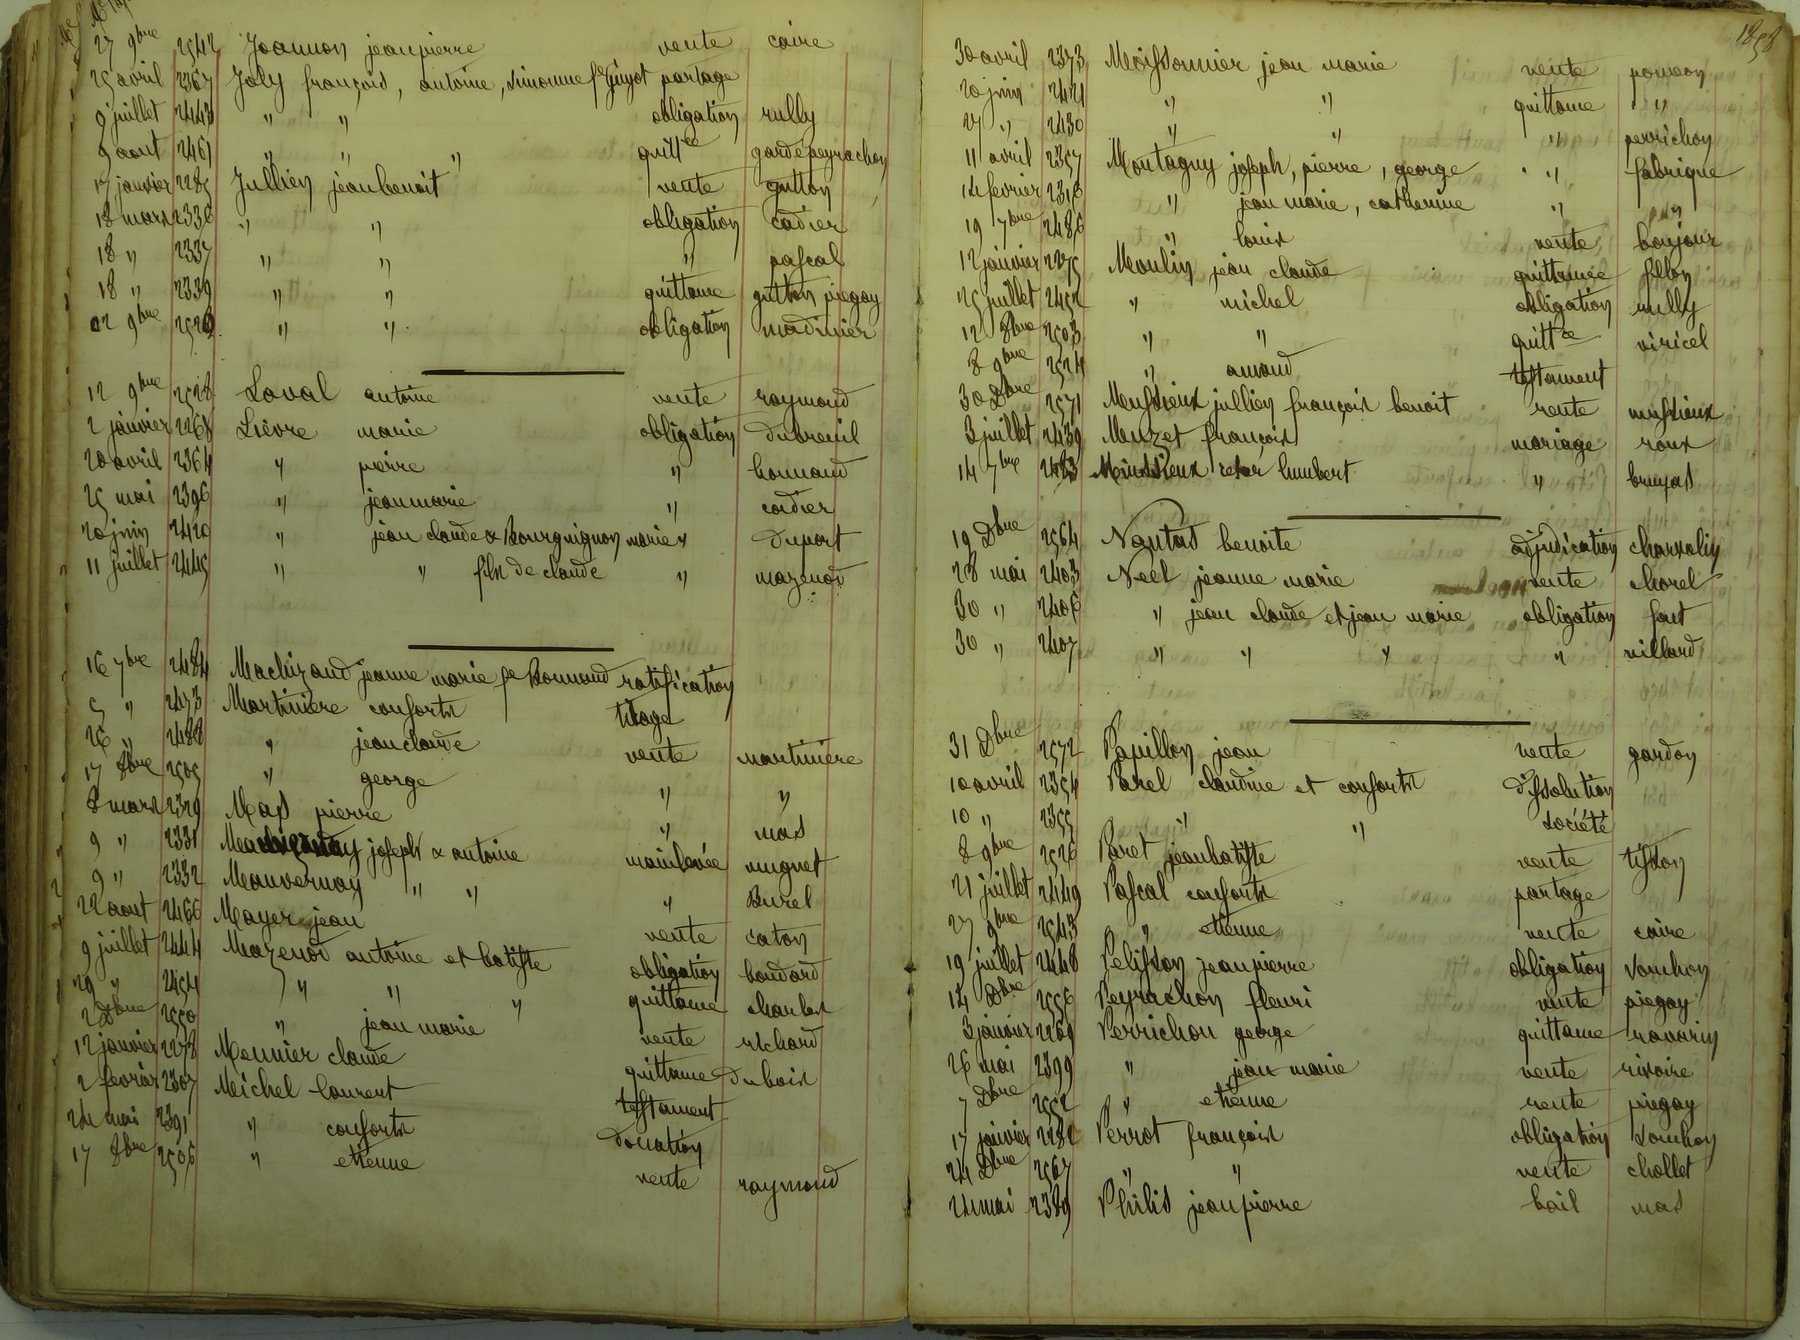 27 9bre 2542 Joannon jeanpierre vente caire
25 avril 2367 Joly françois, antoine, simonne fe guyot partage
9 juillet 2443 " " obligation rully
9 aout 2461 " " " quittce gardepeyrachon
17 janvier 2285 Jullien jeanbenoit vente gutton
18 mars 2336 " " obligation cadier
18 " 2337 " " " pascal
18 " 2339 " " quittance gutton piegay
12 9bre 2529 " " obligation madinier
12 9bre 2528 Laval antoine vente raymond
2 janvier 2268 Lièvre marie obligation dubreuil
20 avril 2364 " pierre " bonnand
25 mai 2396 " jeanmarie " cordier
20 juin 2420 " jean claude & Bourguignon marie " duport
11 juillet 2445 " " fils de claude " mazenod
16 7bre 2484 Machizaud jeanne marie fe Bonnand ratification
5 " 2473 Martinière consorts titrage
26 " 2488 " jeanclaude vente martinière
17 8bre 2505 " george " "
8 mars 2329 Mas pierre " mas
9 " 2331 joseph & antoine mainlevée mugnet
9 " 2332 Mauvernay " " " Burel
22 aout 2466 Mayer jean vente caton
9 juillet 2444 Mazenod antoine et batiste obligation boudard
29 " 2454 " " " quittance charles
2 Dbre 2550 " jean marie vente richard
12 janvier 2278 Meunier claude quittance dubois
2 fevrier 2307 Michel laurent testament
24 mai 2391 " consorts donation
17 8bre 2506 " etienne vente raymond
1858
30 avril 2373 Moissonnier jean marie vente pomeon
20 juin 2421 " " quittance "
27 " 2430 " " " perrichon
11 avril 2357 Montagny joseph, pierre, george " fabrique
14 fevrier 2318 " jean marie, catherine " "
19 7bre 2486 " louis vente bonjour
12 janvier 2275 Moulin jean claude quittance fillon
25 juillet 2452 " michel obligation rully
12 8bre 2503 " " quittce viricel
8 9bre 2524 " amand testament
30 Dbre 2571 Mussieux jullien françois benoit vente mussieux
3 juillet 2439 Muzet françois mariage roux
14 7bre 2483 Mussieux humbert " bruyas
19 Dbre 2564 Nantas benoite adjudication charvolin
28 mai 2403 Néel jeanne marie vente chorel
30 " 2406 " jean claude et jean marie obligation font
30 " 2407 " " " " villard
31 Dbre 2572 Papillon jean vente gardon
10 avril 2354 Parel claudine et consorts dissolution
10 " 2355 " " société
8 9bre 2526 Paret jeanbatiste vente tisson
21 juillet 2449 Pascal consorts partage
27 9bre 2543 " etienne vente caire
19 juillet 2448 Pelisson jeanpierre obligation vonchon
14 Dbre 2556 Peyrachon fleuri vente piegay
3 janvier 2269 Perrichon george quittance navarin
26 mai 2399 " jean marie vente rivoire
7 Dbre 2552 " etienne vente piegay
17 janvier 2282 Perrot françois obligation vonchon
24 Dbre 2567 " " vente chollet
24 mai 2389 Philis jeanpierre bail mas